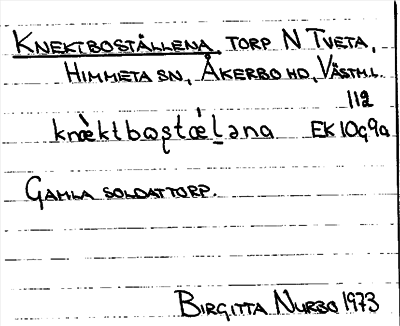 KNEKTBOSTÄLLENA, TORP N TVETA,
HIMMETA SN, ÅKERBO HD, VÄSTM.L.
112
knæ̀ktbωs̨tǽl̠əna EK 10g9a
GAMLA SOLDATTORP.
BIRGITTA NURBO 1973